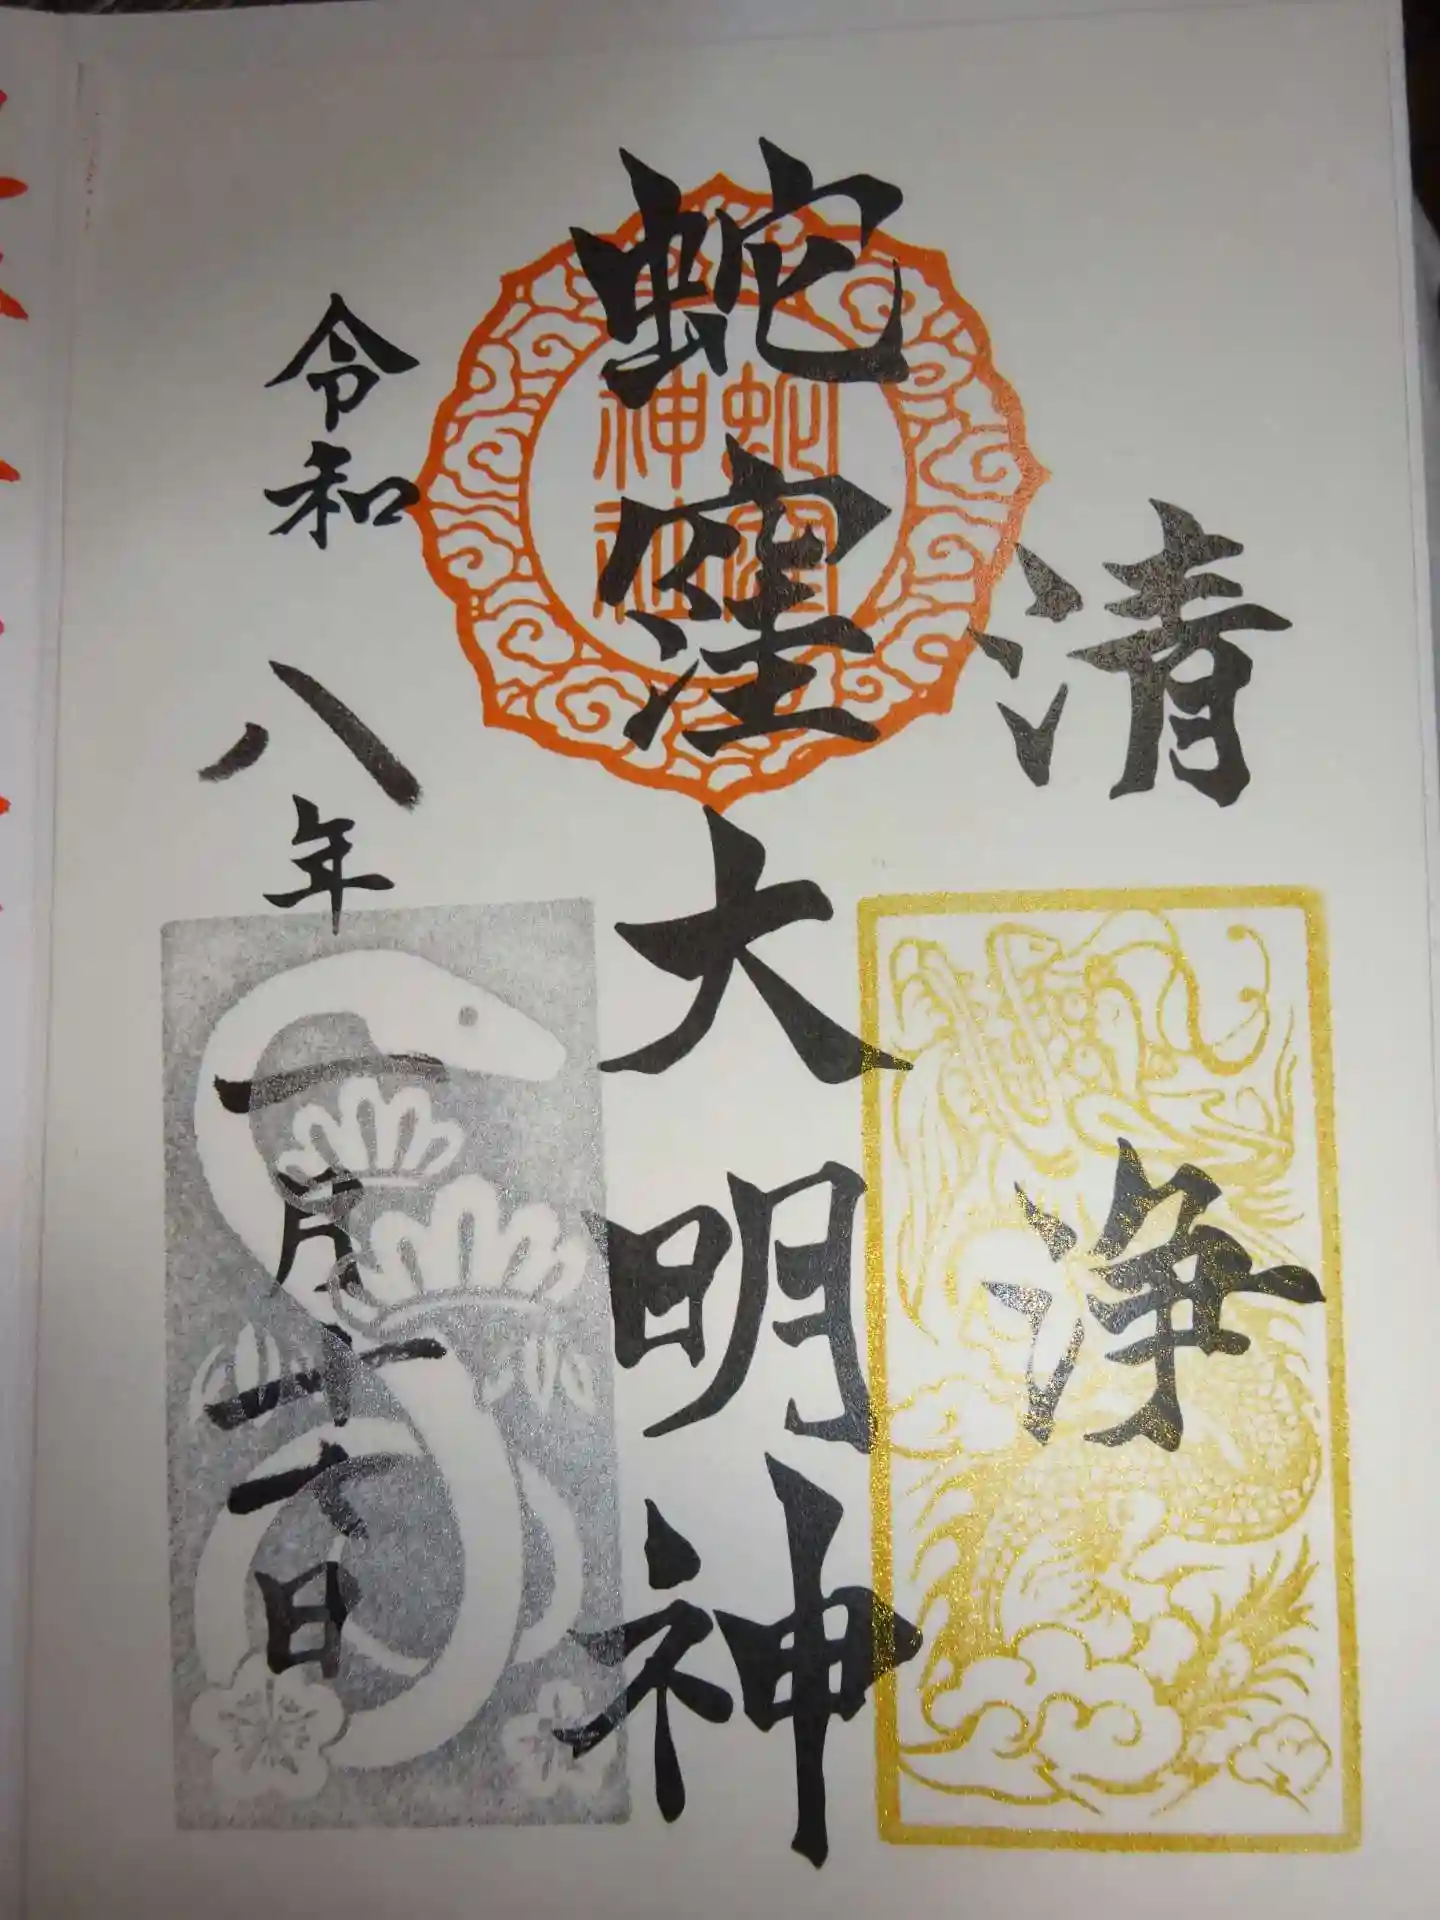 清浄
蛇窪大明神
蛇窪
神社
令和八年一月十六日